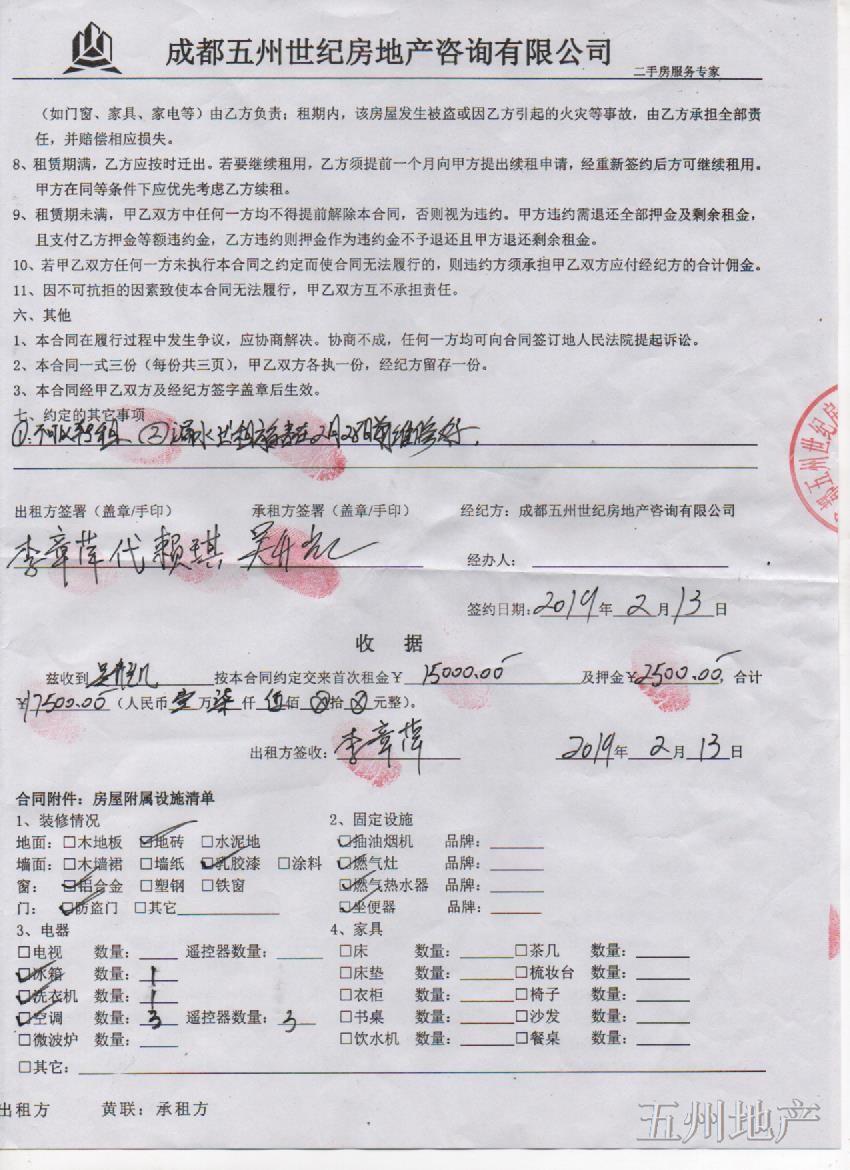 成都五州世纪房地产咨询有限公司
二手房服务专家
（如门窗、家具、家电等）由乙方负责；租期内，该房屋发生被盗或因乙方引起的火灾等事故，由乙方承担全部责
任，并赔偿相应损失。
8、租赁期满，乙方应按时迁出。若要继续租用，乙方须提前一个月向甲方提出续租申请，经重新签约后方可继续租用。
甲方在同等条件下应优先考虑乙方续租。
9、租赁期未满，甲乙双方中任何一方均不得提前解除本合同，否则视为违约。甲方违约需退还全部押金及剩余租金，
且支付乙方押金等额违约金，乙方违约则押金作为违约金不予退还且甲方退还剩余租金。
10、若甲乙双方任何一方未执行本合同之约定而使合同无法履行的，则违约方须承担甲乙双方应付经纪方的合计佣金。
11、因不可抗拒的因素致使本合同无法履行，甲乙双方互不承担责任。
六、其他
1、本合同在履行过程中发生争议，应协商解决。协商不成，任何一方均可向合同签订地人民法院提起诉讼。
2、本合同一式三份（每份共三页），甲乙双方各执一份，经纪方留存一份。
3、本合同经甲乙双方及经纪方签字盖章后生效。
七、约定的其它事项
①：不可以转租 ②漏水出租方在2月28日前维修好。
五州世纪房
出租方签署（盖章/手印） 承租方签署（盖章/手印） 经纪方：成都五州世纪房地产咨询有限公司
李章萍代赖琪 经办人：
签约日期：2019年2月13日
收 据
兹收到 按本合同约定交来首次租金￥15000.00 及押金￥2500.00，合计
￥17500.00（人民币壹万柒仟伍佰⊗拾⊗元整）。
出租方签收：李章萍 2019年2月13日
合同附件：房屋附属设施清单
1、装修情况 2、固定设施
地面：□木地板 ☑地砖 □水泥地 ☑抽油烟机 品牌：
墙面：□木墙裙 □墙纸 ☑乳胶漆 □涂料 ☑燃气灶 品牌：
窗：☑铝合金 □塑钢 □铁窗 ☑燃气热水器 品牌：
门：☑防盗门 □其它 ☑坐便器 品牌：
3、电器 4、家具
□电视 数量： 遥控器数量： □床 数量： □茶几 数量：
☑冰箱 数量：1 □床垫 数量： □梳妆台 数量：
☑洗衣机 数量：1 □衣柜 数量： □椅子 数量：
☑空调 数量：3 遥控器数量：3 □书桌 数量： □沙发 数量：
□微波炉 数量： □饮水机 数量： □餐桌 数量：
□其它：
出租方 黄联：承租方
五州地产